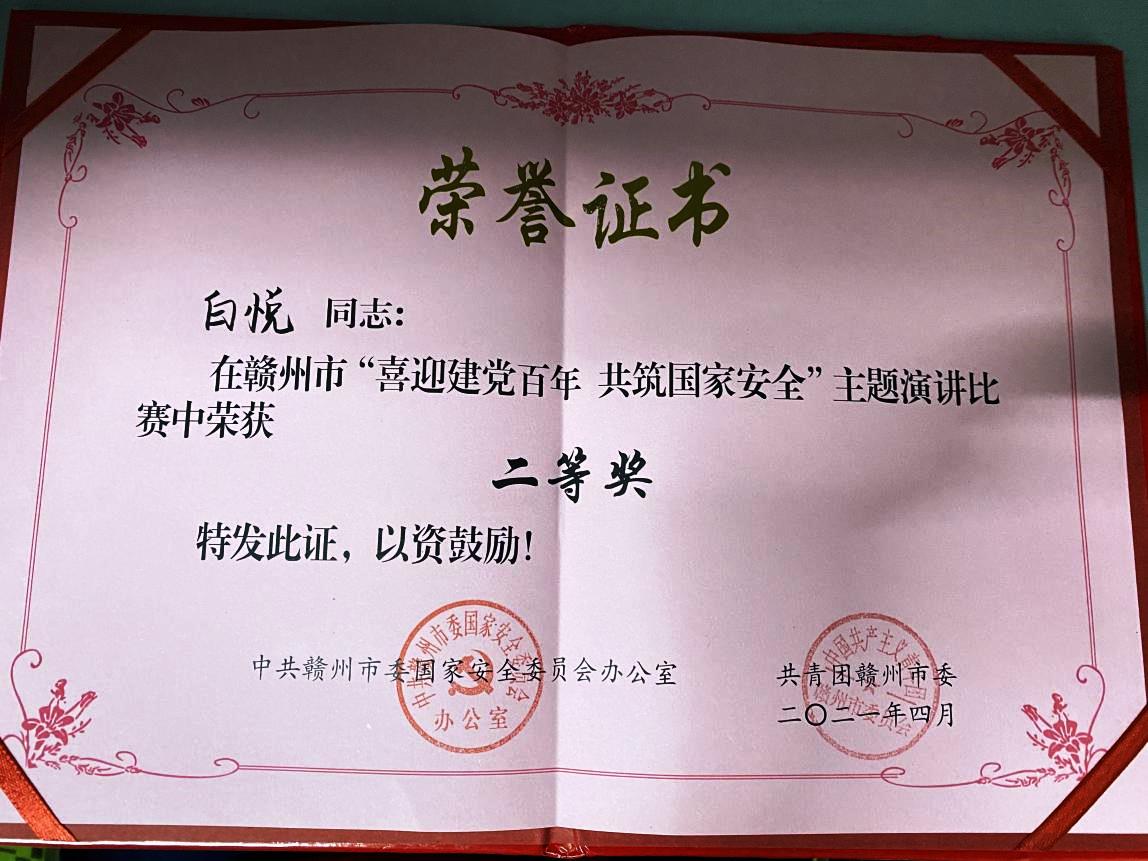 荣誉证书
白悦 同志：
在赣州市“喜迎建党百年 共筑国家安全”主题演讲比
赛中荣获
二等奖
特发此证，以资鼓励！
中共赣州市委国家安全委员会办公室
共青团赣州市委
二〇二一年四月
中共赣州市委国家安全委员会
办公室
中国共产主义青年团
赣州市委员会